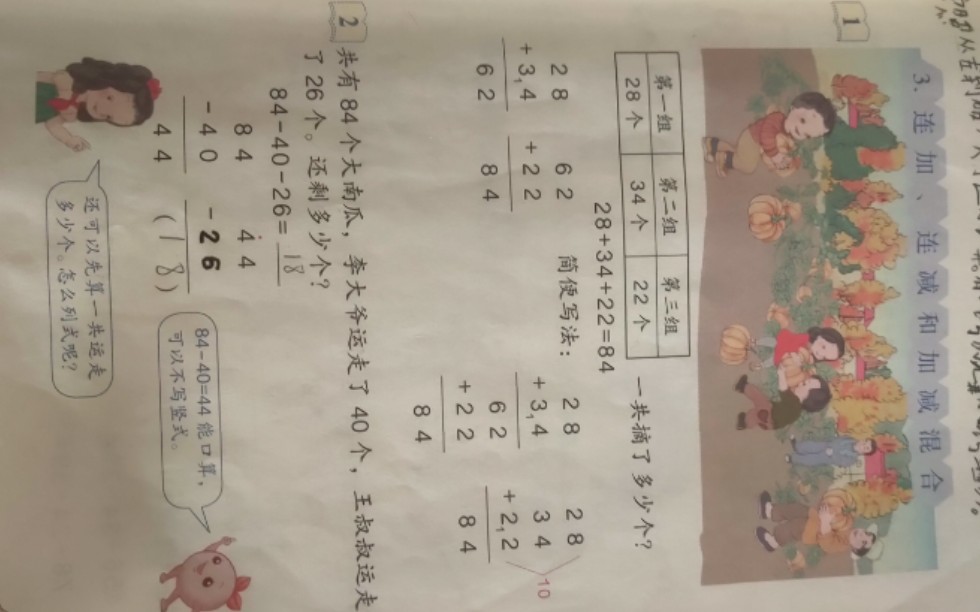 3. 连加、连减和加减混合
1
第一组 第二组 第三组
28 个 34 个 22 个
一共摘了多少个?
28+34+22=84
2 8
+ 3 1 4
6 2
6 2
+ 2 2
8 4
简便写法:
2 8
+ 3 1 4
6 2
+ 2 2
8 4
2 8
3 4
+ 2 1 2
8 4
10
2
共有 84 个大南瓜,李大爷运走了 40 个,王叔叔运走
了 26 个。还剩多少个?
84-40-26= 18
8 4
- 4 0
4 4
4 4
- 2 6
( 1 8 )
84-40=44 能口算,
可以不写竖式。
还可以先算一共运走
多少个。怎么列式呢?